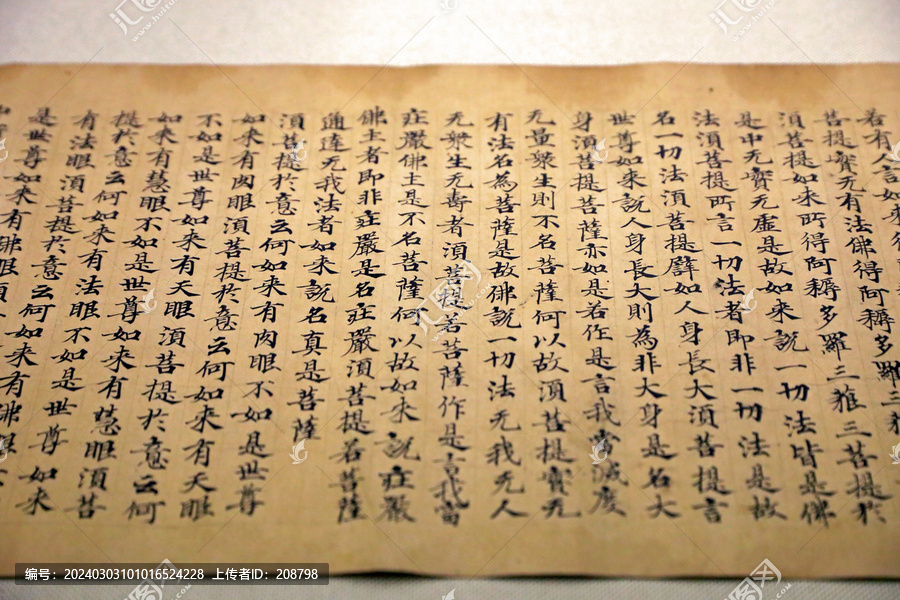 若有人言如來得
菩提實无有法佛得阿耨多羅三
菩提實无有法佛得阿耨多羅三藐三菩提於
須菩提如來所得阿耨多羅三藐三菩提
是中无實无虛是故如來說一切法皆是佛
法須菩提所言一切法者即非一切法是故
名一切法須菩提譬如人身長大須菩提言
世尊如來說人身長大則為非大身是名大
身須菩提菩薩亦如是若作是言我當滅度
无量衆生則不名菩薩何以故須菩提實无
有法名為菩薩是故佛說一切法无我无人
无衆生无壽者須菩提若菩薩作是言我當
庄嚴佛土是不名菩薩何以故如來說庄嚴
佛土者即非庄嚴是名庄嚴須菩提若菩薩
通達无我法者如來說名真是菩薩
須菩提於意云何如來有肉眼不如是世尊
如來有肉眼須菩提於意云何如來有天眼
不如是世尊如來有天眼須菩提於意云何
如來有慧眼不如是世尊如來有慧眼須菩
提於意云何如來有法眼不如是世尊如來
有法眼須菩提於意云何如來有佛
是世尊如來有佛眼須
编号：20240303101016524228 上传者ID：208798
汇图网
www.huitu.com